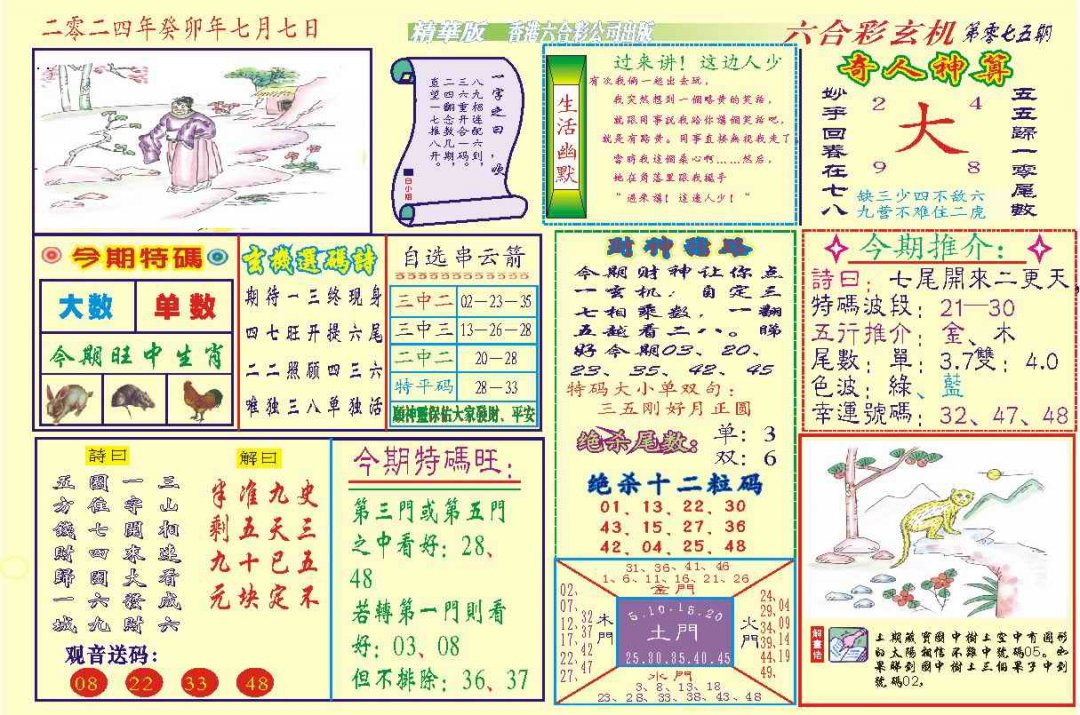 二零二四年癸卯年七月七日
精華版 香港六合彩公司出版
六合彩玄机 第零七五期
一字之曰，唤
八九相连配六到，
三六重开合一码。
二四翻念数几期，
直望一七推八开。
白小姐
生活幽默
过来讲！这边人少
有次我俩一起出去玩，
我突然想到一個略黄的笑話，
就跟同事説我給你講個笑話吧，
就是有點黄。同事直接無視我走了
當時我這個桑心啊……然后，
她在角落里跟我揮手
“過来講！這邊人少！”
奇人神算
妙手回春在七八
2 4
大
9 8
五五歸一零尾數
缺三少四不敌六
九营不难住二虎
今期特碼
大数 单数
今期旺中生肖
玄機選碼詩
期待一三终现身
四七旺开提六尾
二二照顾四三六
唯独三八单独活
自选串云箭
三中二 02—23—35
三中三 13—26—28
二中二 20—28
特平码 28—33
願神靈保佑大家發財、平安
財神睹路
今期财神让你点
一玄机，自定三
七相乘数，一翻
五越看二八。睇
好今期03、20、
23、35、42、45
特码大小单双句：
三五刚好月正圆
绝杀尾数：
单：3
双：6
绝杀十二粒码
01、13、22、30
43、15、27、36
42、04、25、48
今期推介：
詩曰：七尾開來二更天，
特碼波段：21—30
五行推介：金、木
尾數；單：3.7雙：4.0
色波；綠、藍
幸運號碼：32、47、48
詩曰
三山相連看成六
一字開來大發財
園住七四園六九
五方錢財歸一城
解曰
史三五不
九天已定
准五十块
半剩九元
观音送码：
08 22 33 48
今期特碼旺：
第三門或第五門
之中看好：28、
48
若轉第一門則看
好：03、08
但不排除：36、37
31、36、41、46
1、6、11、16、21、26
金門
02、
07、
12、
17、
22、
27、
32
37
42
47
木門
5.10.15.20
土門
25.30.35.40.45
火門
24、
29、
34、
39、
44、
49、
04
09
14
19
水門
3、8、13、18
23、28、33、38、43、48
解畫悟
上期藏寶圖中樹上空中有圆形
的太陽相信不難中號碼05。如
果睇到圖中樹上三個果子中到
號碼02，